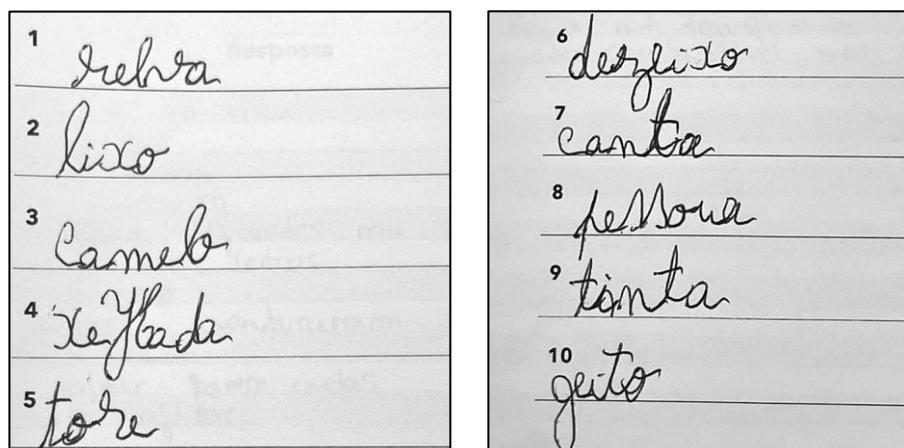 1 relva
2 lixo
3 camelo
4
5 tore
6 dezlixo
7 canta
8 pessoua
9 tinta
10 geito